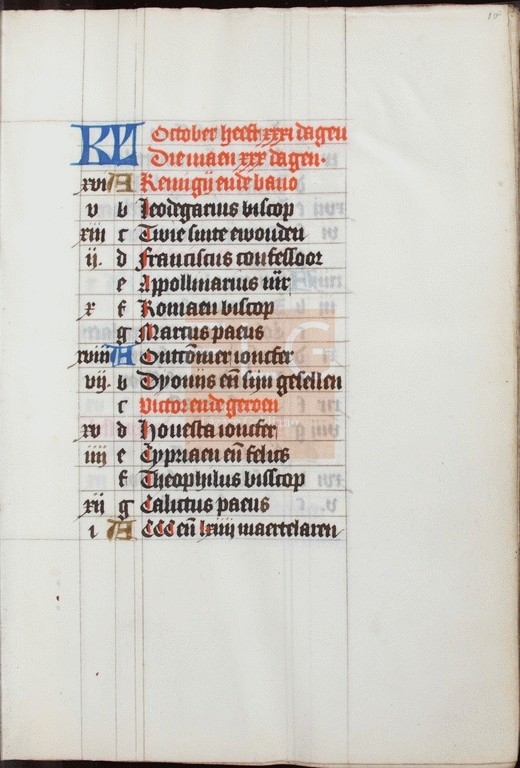 KL October heeft xxxi dagen
Die maen xxx dagen.
xvi A Remigij ende bavo
v b Leodegarius biscop
xiii c Twie sinte ewouden
ij. d Franciscus confessoor
e Appollinarius mr
x f Romaen biscop
g Marcus paeus
xviii A joncfer
vij. b Dyonijs en sijn gesellen
c Victor ende gereon
xv d Honesta joncfer
iiii e Cypriaen en felics
f Theophilus bisscop
xij g Calictus paeus
i A CCC en lxiiij maertelaren